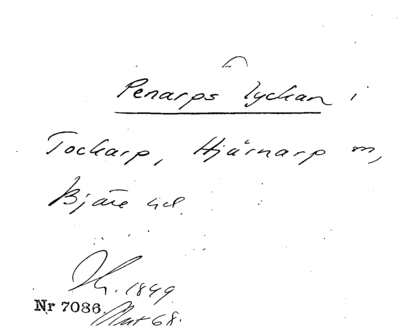 Penarps lyckan i
Tockarp, Hjärnarp
Bjäre hd.
1849
Nr 7086.